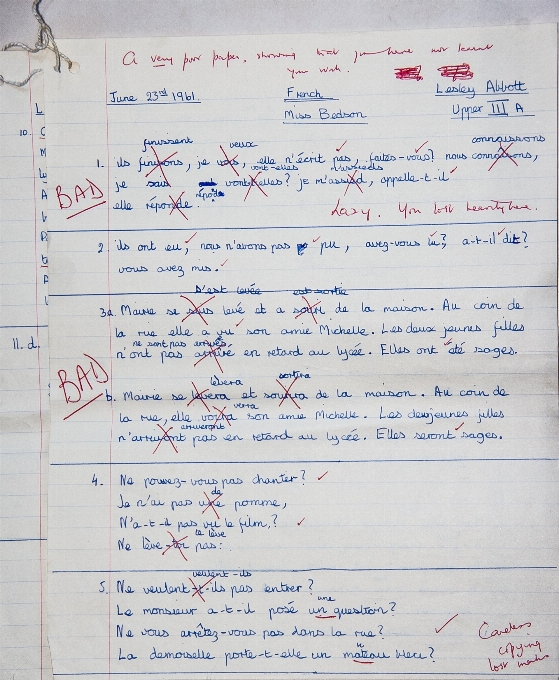 A very poor paper, showing that you have not learnt
your work.
June 23rd 1961. French Lesley Abbott
Miss Bedson Upper III A
finissent veux connaissons
1. ils finissons, je vous, elle n'écrit pas, faites-vous? nous connaisons,
vont-elles m'assieds
je sais vont-elles? je m'assied, appelle-t-il
BAD
répond
elle réponde.
Lazy. You lost heavily here.
2. ils ont eu, nous n'avons pas pu, avez-vous lu? a-t-il dit?
vous avez mis.
s'est levée est sortie
3a. Marie se levé et a sorti de la maison. Au coin de
la rue elle a vu son amie Michelle. Les deux jeunes filles
ne sont pas arrivées
n'ont pas arrivé en retard au lycée. Elles ont été sages.
BAD
lèvera sortira
b. Marie se levera et de la maison. Au coin de
verra
la rue, elle voira son amie Michelle. Les deux jeunes filles
arriveront
n'arrivont pas en retard au lycée. Elles seront sages.
4. Ne pouvez-vous pas chanter?
de
Je n'ai pas une pomme,
N'a-t-il pas vu le film?
te lève
Ne lève-toi pas.
veulent-ils
5. Ne veulent-t-ils pas entrer?
une
Le monsieur a-t-il posé un question?
Ne vous arrêtez-vous pas dans la rue?
La demoiselle porte-t-elle un mateau bleu?
Careless
copying
lost marks
10.
11. d.